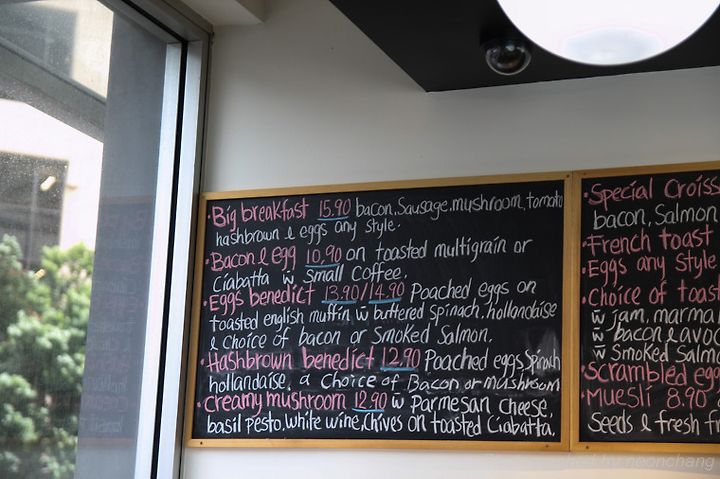 Big breakfast 15.90 bacon, Sausage, mushroom, tomato
hashbrown & eggs any style.
Bacon & egg 10.90 on toasted multigrain or
Ciabatta w̃ small Coffee.
Eggs benedict 13.90/14.90 Poached eggs on
toasted english muffin w̃ buttered spinach, hollandaise
& choice of bacon or Smoked Salmon.
Hashbrown benedict 12.90 Poached eggs Spinach
hollandaise, a choice of Bacon or mushroom
Creamy mushroom 12.90 w̃ Parmesan cheese,
basil pesto, white wine, chives on toasted Ciabatta.
Special Croiss
bacon, Salmon
French toast
Eggs any style
Choice of toast
w̃ jam, marma
w̃ bacon & avoc
w̃ Smoked Salmo
Scrambled egg
Muesli 8.90
Seeds & fresh fr
neonchang